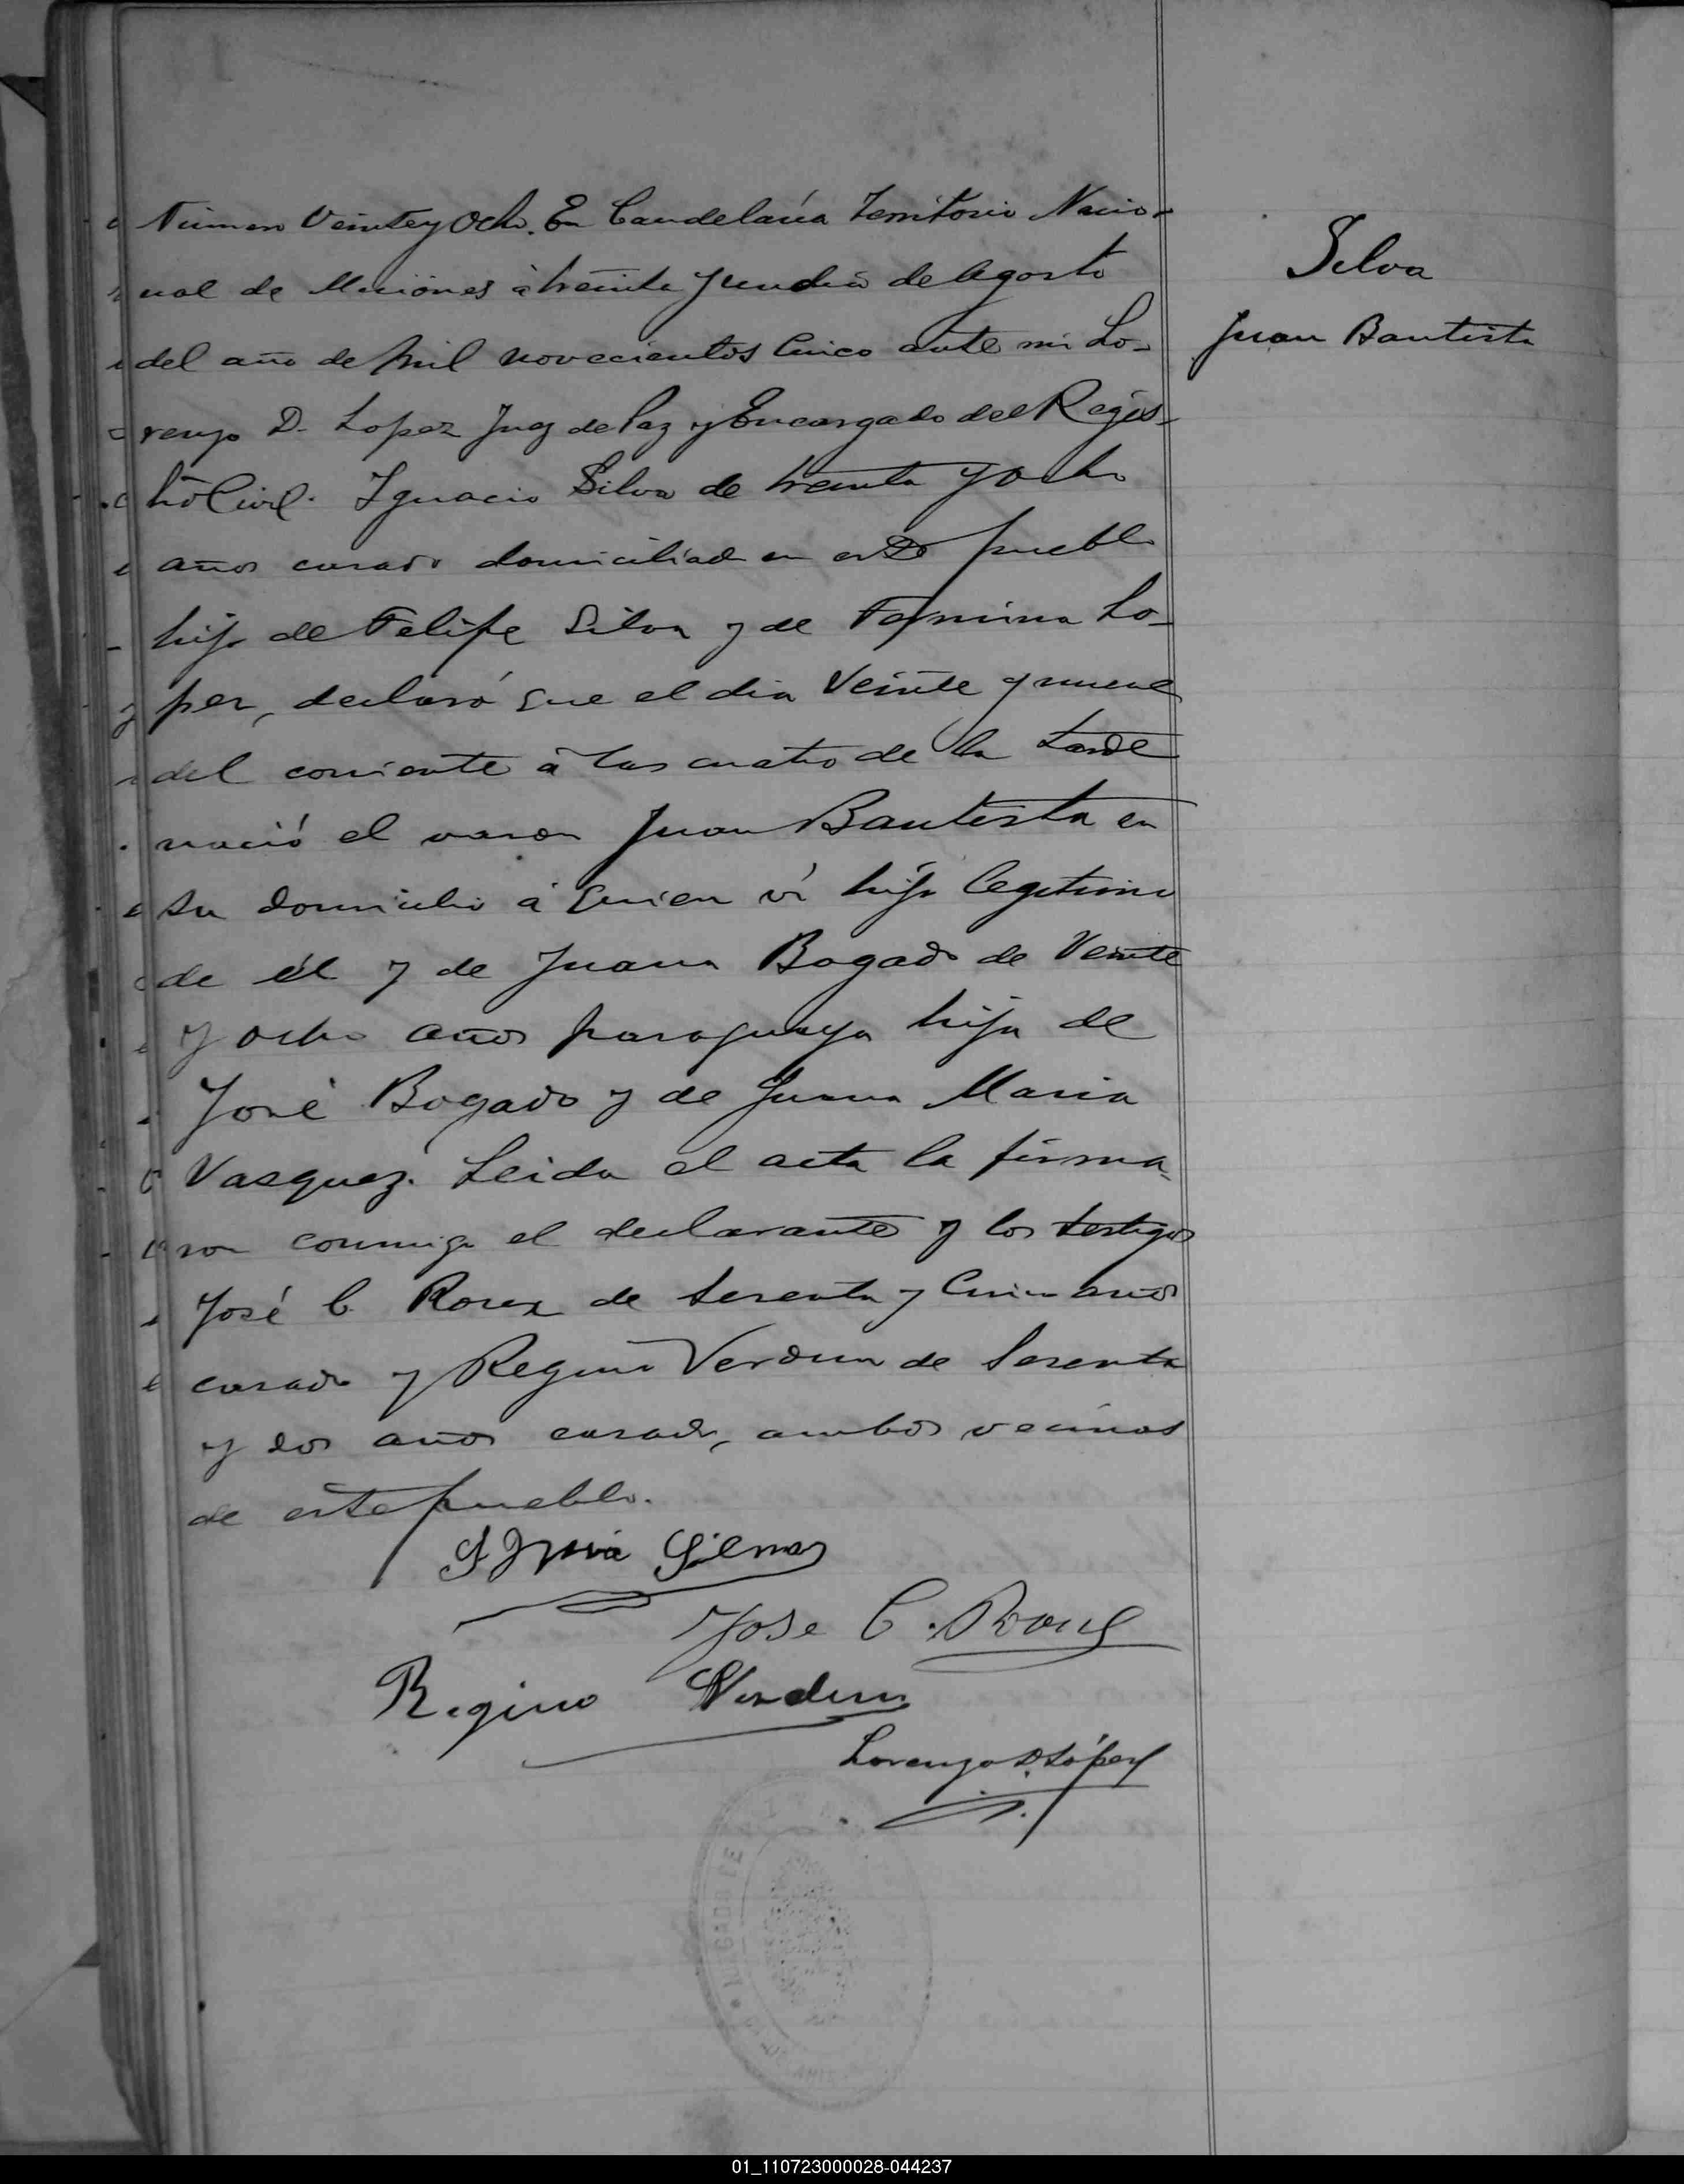 Número Veinte y Ocho. En Candelaria Territorio Nacio-
nal de Misiones á treinta y un dia de Agosto
del año de mil novecientos Cinco ante mi Lo-
renzo D. Lopez Juez de Paz y Encargado del Regis-
tro Civil. Ignacio Silva de treinta y ocho
años casado domiciliado en este pueblo
hijo de Felipe Silva y de Lo-
pez, declaró que el dia Veinte y nueve
del corriente á las cuatro de la tarde
nació el varon Juan Bautista en
su domicilio á quien vi hijo legitimo
de él y de Juana Bogado de Veinte
y ocho años paraguaya hija de
José Bogado y de Juana Maria
Vasquez. Leida el acta la firma-
ron conmigo el declarante y los testigos
José C. de y Cinco años
casado y Regino Verdun de
y dos años casado, ambos vecinos
de este pueblo.
Silva
Jose C.
Regino Verdun
Lorenzo D. López
Silva
Juan Bautista
01_110723000028-044237